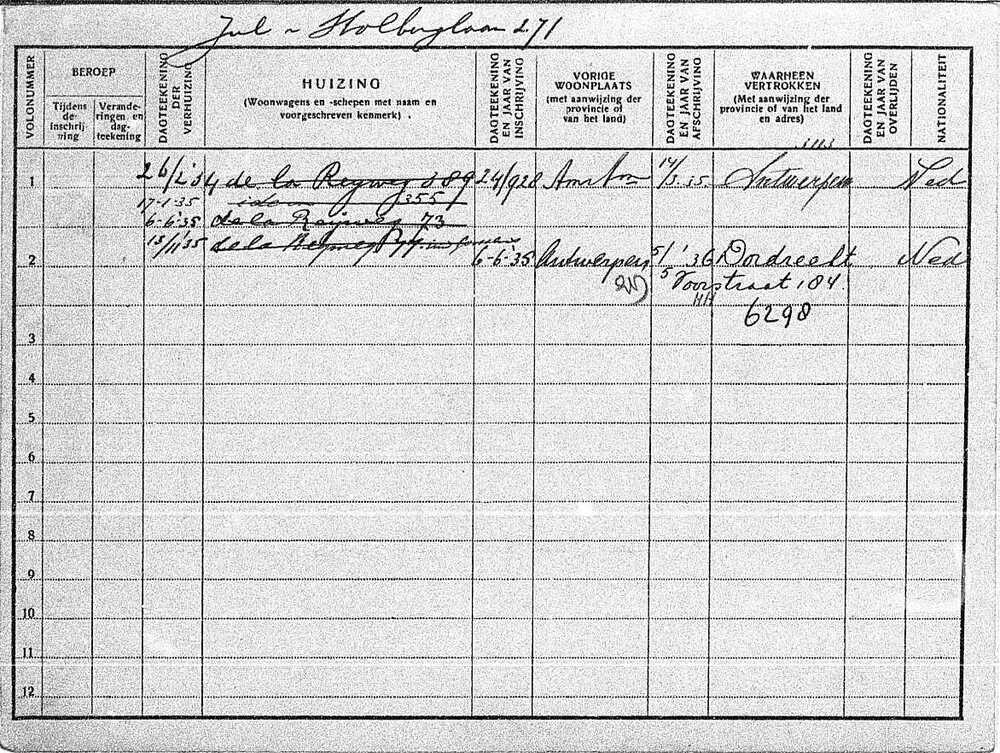 271
VOLGNUMMER
BEROEP
Tijdens de inschrijving
Veranderingen en dagteekening
DAGTEEKENING DER VERHUIZING
HUIZING
(Woonwagens en -schepen met naam en
voorgeschreven kenmerk)
DAGTEEKENING EN JAAR VAN INSCHRIJVING
VORIGE
WOONPLAATS
(met aanwijzing der
provincie of
van het land)
DAGTEEKENING EN JAAR VAN AFSCHRIJVING
WAARHEEN
VERTROKKEN
(Met aanwijzing der
provincie of van het land
en adres)
DAGTEEKENING EN JAAR VAN OVERLIJDEN
NATIONALITEIT
1 26/2'34 de la Reyweg 389 24/928 Amsm 14/3.35 Antwerpen Ned
17-1-35 idem 355
6-6-'35 de la Reyweg 73
15/11'35 de la Reyweg
2 6-6-'35 Antwerpen 5/5'36 Dordrecht Ned
Voorstraat 184.
6298
3
4
5
6
7
8
9
10
11
12